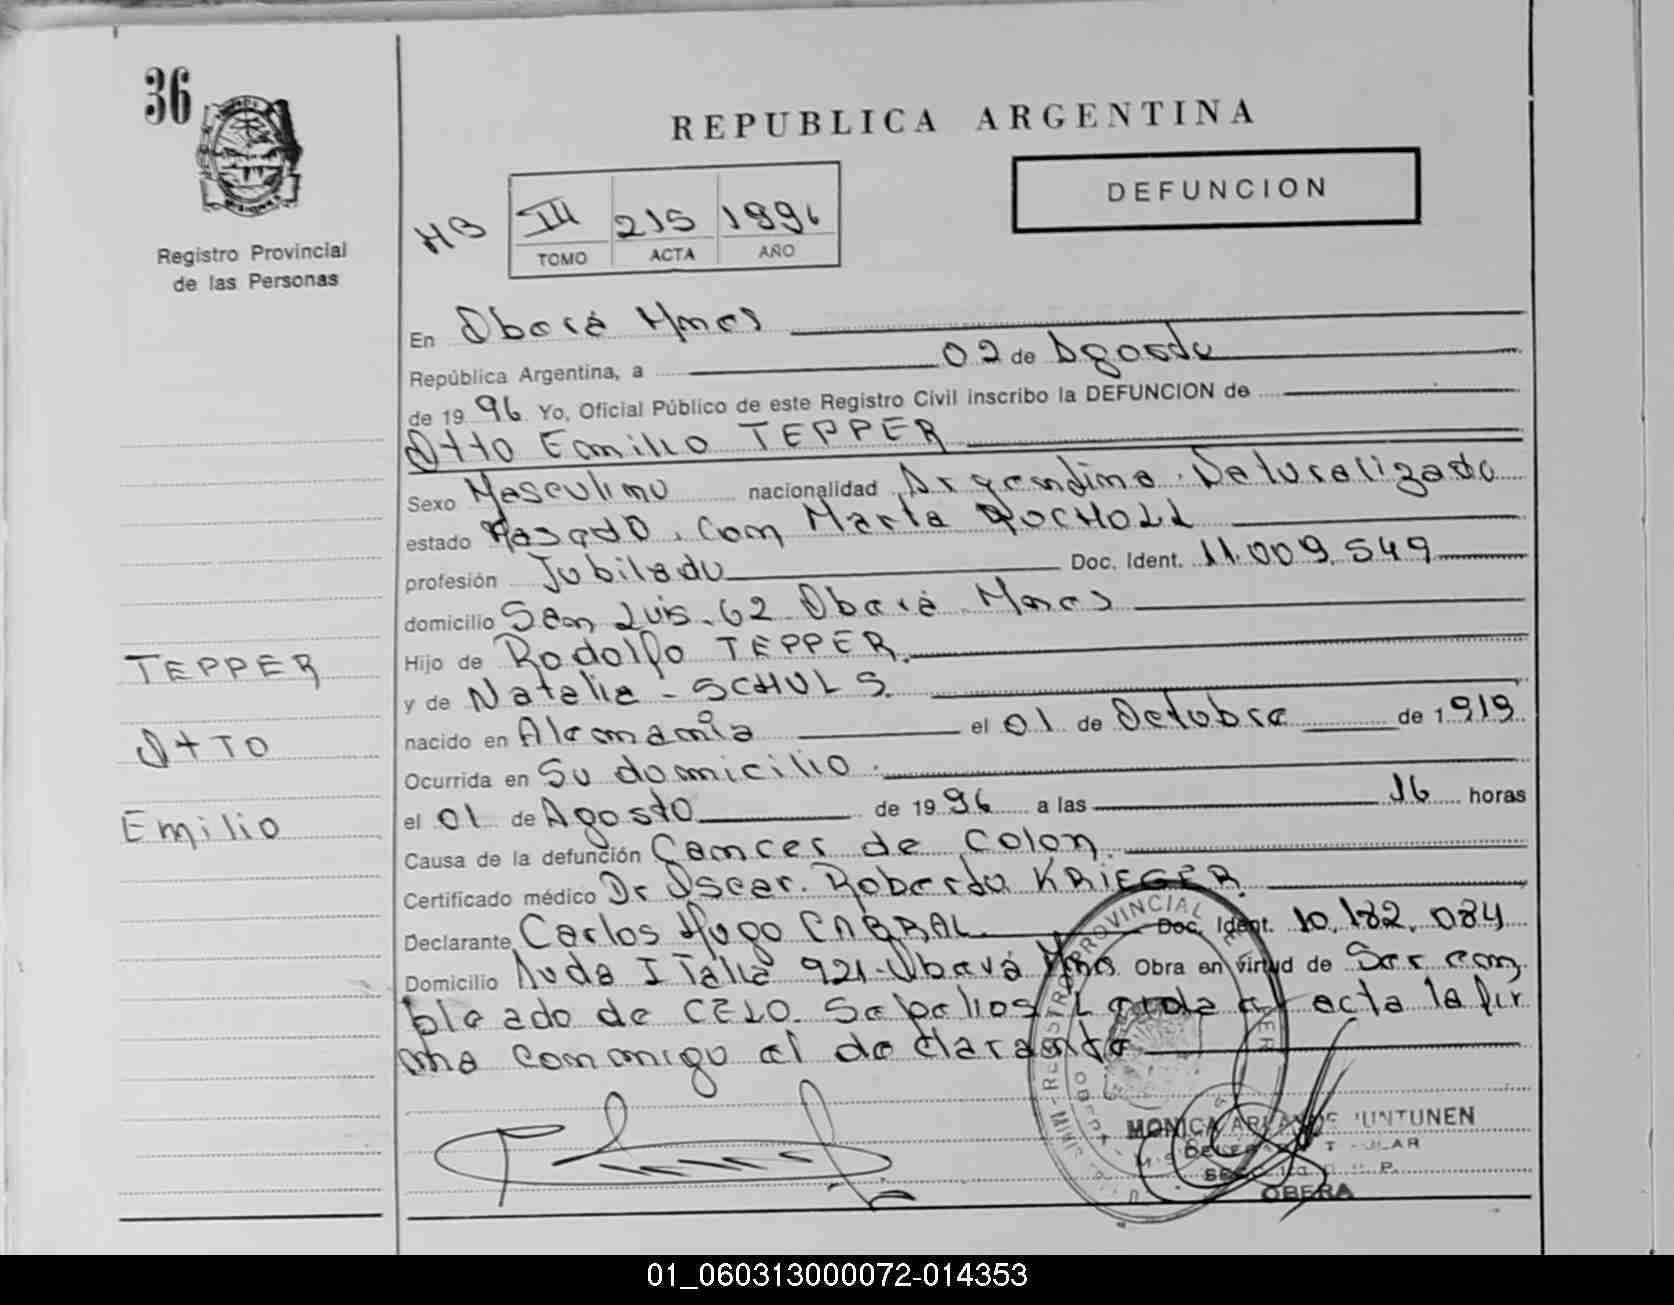 36
REPUBLICA ARGENTINA
DEFUNCION
HB III 215 1996
TOMO ACTA AÑO
Registro Provincial
de las Personas
En Oberá Mnes
República Argentina, a 02 de Agosto
de 1996 Yo, Oficial Público de este Registro Civil inscribo la DEFUNCION de
Otto Emilio TEPPER
Sexo Masculino nacionalidad Argentino. Naturalizado
estado Casado, con Marta ROCHOLL
profesión Jubilado Doc. Ident. 11.009.549
domicilio San Luis. 62 Oberá Mnes
Hijo de Rodolfo TEPPER.
y de Natalia - SCHULS.
nacido en Alemania el 01 de Octubre de 1919
Ocurrida en Su domicilio.
el 01 de Agosto de 1996 a las 16 horas
Causa de la defunción Cancer de Colon.
Certificado médico Dr Oscar. Roberto KRIEGER.
Declarante Carlos Hugo CABRAL. Doc. Ident. 10.182.084
Domicilio Avda ITalia 921-Oberá Mnes Obra en virtud de Ser em
pleado de CELO. Sepelios. Leida el acta la fir
ma conmigo el declarante
TEPPER
Otto
Emilio
REGISTRO PROVINCIAL
MONICA JUNTUNEN
OBERA
01_060313000072-014353